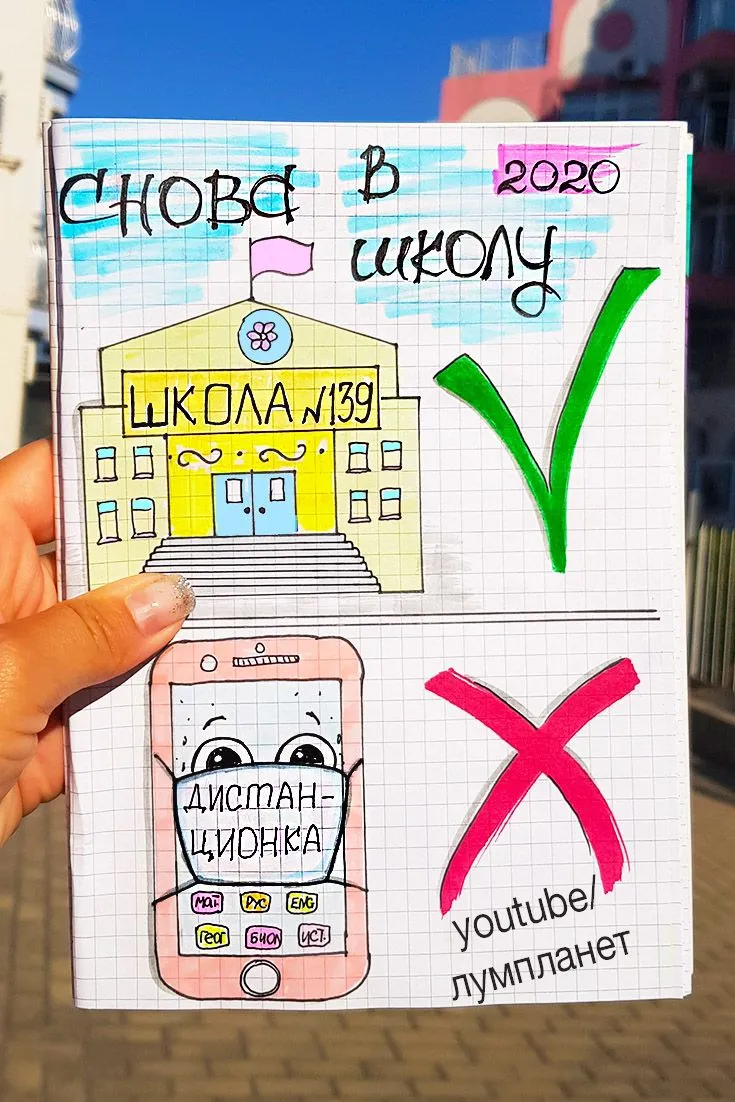 СНОВА В 2020
ШКОЛУ
ШКОЛА №139
ДИСТАН-
ЦИОНКА
МАТ. РУС ENG
ГЕОГ БИОЛ ИСТ.
youtube/
лумпланет